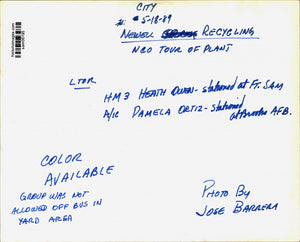 CITY
5-18-89
NEWELL RECYCLING
NCO TOUR OF PLANT
LTOR
HM3 HEATH OWEN - stationed at FT. SAM
A/C PAMELA ORTIZ - stationed
at Brooks AFB.
COLOR
AVAILABLE
GROUP WAS NOT
ALLOWED OFF BUS IN
YARD AREA
PHOTO BY
JOSE BARRERA